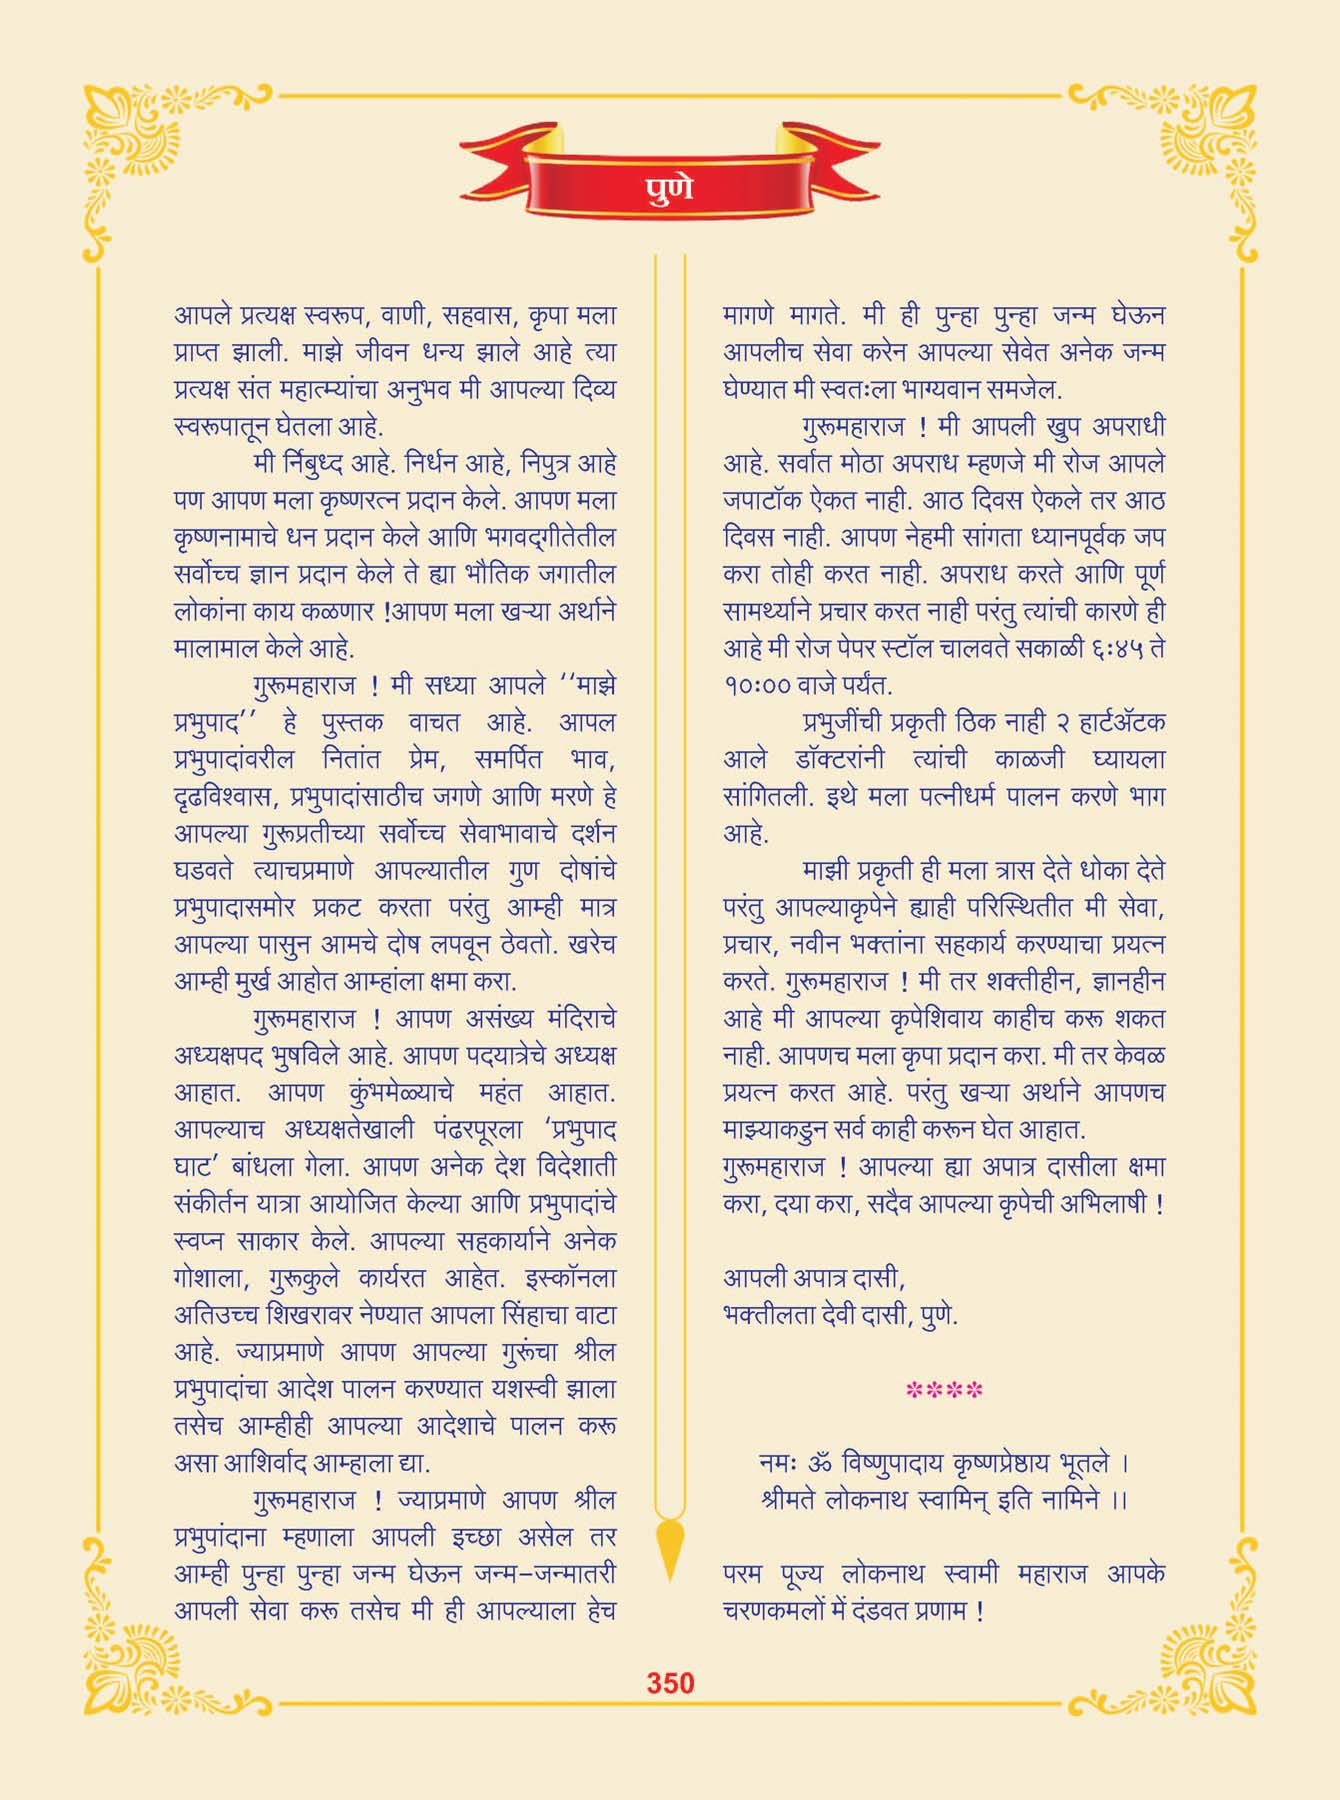 पुणे
आपले प्रत्यक्ष स्वरूप, वाणी, सहवास, कृपा मला
प्राप्त झाली. माझे जीवन धन्य झाले आहे त्या
प्रत्यक्ष संत महात्म्यांचा अनुभव मी आपल्या दिव्य
स्वरूपातून घेतला आहे.
मी र्निबुध्द आहे. निर्धन आहे, निपुत्र आहे
पण आपण मला कृष्णरत्न प्रदान केले. आपण मला
कृष्णनामाचे धन प्रदान केले आणि भगवद्‌गीतेतील
सर्वोच्च ज्ञान प्रदान केले ते ह्या भौतिक जगातील
लोकांना काय कळणार !आपण मला खऱ्या अर्थाने
मालामाल केले आहे.
गुरूमहाराज ! मी सध्या आपले ‘‘माझे
प्रभुपाद’’ हे पुस्तक वाचत आहे. आपल
प्रभुपादांवरील नितांत प्रेम, समर्पित भाव,
दृढविश्वास, प्रभुपादांसाठीच जगणे आणि मरणे हे
आपल्या गुरूप्रतीच्या सर्वोच्च सेवाभावाचे दर्शन
घडवते त्याचप्रमाणे आपल्यातील गुण दोषांचे
प्रभुपादासमोर प्रकट करता परंतु आम्ही मात्र
आपल्या पासुन आमचे दोष लपवून ठेवतो. खरेच
आम्ही मुर्ख आहोत आम्हांला क्षमा करा.
गुरूमहाराज ! आपण असंख्य मंदिराचे
अध्यक्षपद भुषविले आहे. आपण पदयात्रेचे अध्यक्ष
आहात. आपण कुंभमेळ्याचे महंत आहात.
आपल्याच अध्यक्षतेखाली पंढरपूरला ‘प्रभुपाद
घाट’ बांधला गेला. आपण अनेक देश विदेशाती
संकीर्तन यात्रा आयोजित केल्या आणि प्रभुपादांचे
स्वप्न साकार केले. आपल्या सहकार्याने अनेक
गोशाला, गुरूकुले कार्यरत आहेत. इस्कॉनला
अतिउच्च शिखरावर नेण्यात आपला सिंहाचा वाटा
आहे. ज्याप्रमाणे आपण आपल्या गुरूंचा श्रील
प्रभुपादांचा आदेश पालन करण्यात यशस्वी झाला
तसेच आम्हीही आपल्या आदेशाचे पालन करू
असा आशिर्वाद आम्हाला द्या.
गुरूमहाराज ! ज्याप्रमाणे आपण श्रील
प्रभुपांदाना म्हणाला आपली इच्छा असेल तर
आम्ही पुन्हा पुन्हा जन्म घेऊन जन्म-जन्मातरी
आपली सेवा करू तसेच मी ही आपल्याला हेच
मागणे मागते. मी ही पुन्हा पुन्हा जन्म घेऊन
आपलीच सेवा करेन आपल्या सेवेत अनेक जन्म
घेण्यात मी स्वतःला भाग्यवान समजेल.
गुरूमहाराज ! मी आपली खुप अपराधी
आहे. सर्वात मोठा अपराध म्हणजे मी रोज आपले
जपाटॉक ऐकत नाही. आठ दिवस ऐकले तर आठ
दिवस नाही. आपण नेहमी सांगता ध्यानपूर्वक जप
करा तोही करत नाही. अपराध करते आणि पूर्ण
सामर्थ्याने प्रचार करत नाही परंतु त्यांची कारणे ही
आहे मी रोज पेपर स्टॉल चालवते सकाळी ६:४५ ते
१०:०० वाजे पर्यंत.
प्रभुजींची प्रकृती ठिक नाही २ हार्टअ‍ॅटक
आले डॉक्टरांनी त्यांची काळजी घ्यायला
सांगितली. इथे मला पत्नीधर्म पालन करणे भाग
आहे.
माझी प्रकृती ही मला त्रास देते धोका देते
परंतु आपल्याकृपेने ह्याही परिस्थितीत मी सेवा,
प्रचार, नवीन भक्तांना सहकार्य करण्याचा प्रयत्न
करते. गुरूमहाराज ! मी तर शक्तीहीन, ज्ञानहीन
आहे मी आपल्या कृपेशिवाय काहीच करू शकत
नाही. आपणच मला कृपा प्रदान करा. मी तर केवळ
प्रयत्न करत आहे. परंतु खऱ्या अर्थाने आपणच
माझ्याकडुन सर्व काही करून घेत आहात.
गुरूमहाराज ! आपल्या ह्या अपात्र दासीला क्षमा
करा, दया करा, सदैव आपल्या कृपेची अभिलाषी !
आपली अपात्र दासी,
भक्तीलता देवी दासी, पुणे.
****
नमः ॐ विष्णुपादाय कृष्णप्रेष्ठाय भूतले ।
श्रीमते लोकनाथ स्वामिन् इति नामिने ।।
परम पूज्य लोकनाथ स्वामी महाराज आपके
चरणकमलों में दंडवत प्रणाम !
350